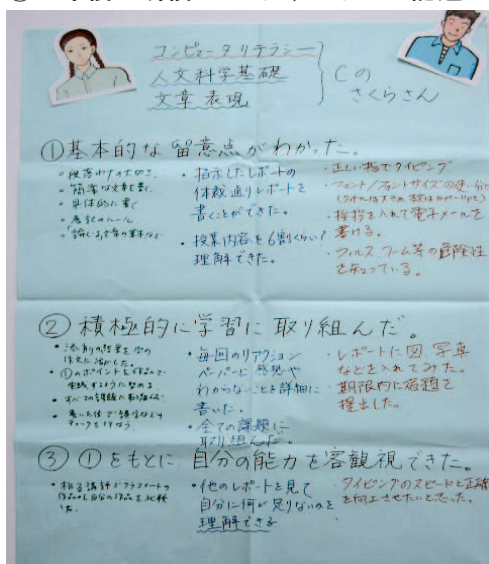 コンピュータリテラシー
人文科学基礎
文章表現
Cの
さくらさん
①基本的な留意点がわかった。
・段落分けの大切さ
・簡潔な文章を書く
・具体的に書く
・表記のルール
・指示したレポートの
体裁通りレポートを
書くことができた。
・授業内容を6割くらい
理解できた。
・正しい指でタイピング
・フォント/フォントサイズの使い分け
・挨拶を入れて電子メールを
書ける。
・ウィルス、ワーム等の危険性
を知っている。
②積極的に学習に取り組んだ。
・添削の結果を次の
作文に活かした。
・①のポイントを作品で
実践するように努める
・すべての課題に取り組む
・毎回のリアクション
ペーパーに感想や
わからないことを詳細に
書いた。
・全ての課題に
取り組んだ。
・レポートに図、写真
などを入れてみた。
・期限内に宿題を
提出した。
③①をもとに、自分の能力を客観視できた。
・相互講評でクラスメートの
作品と自分の作品を比較
・他のレポートを見て
自分に何が足りないのを
理解できる
・タイピングのスピードと正確
を向上させたいと思った。